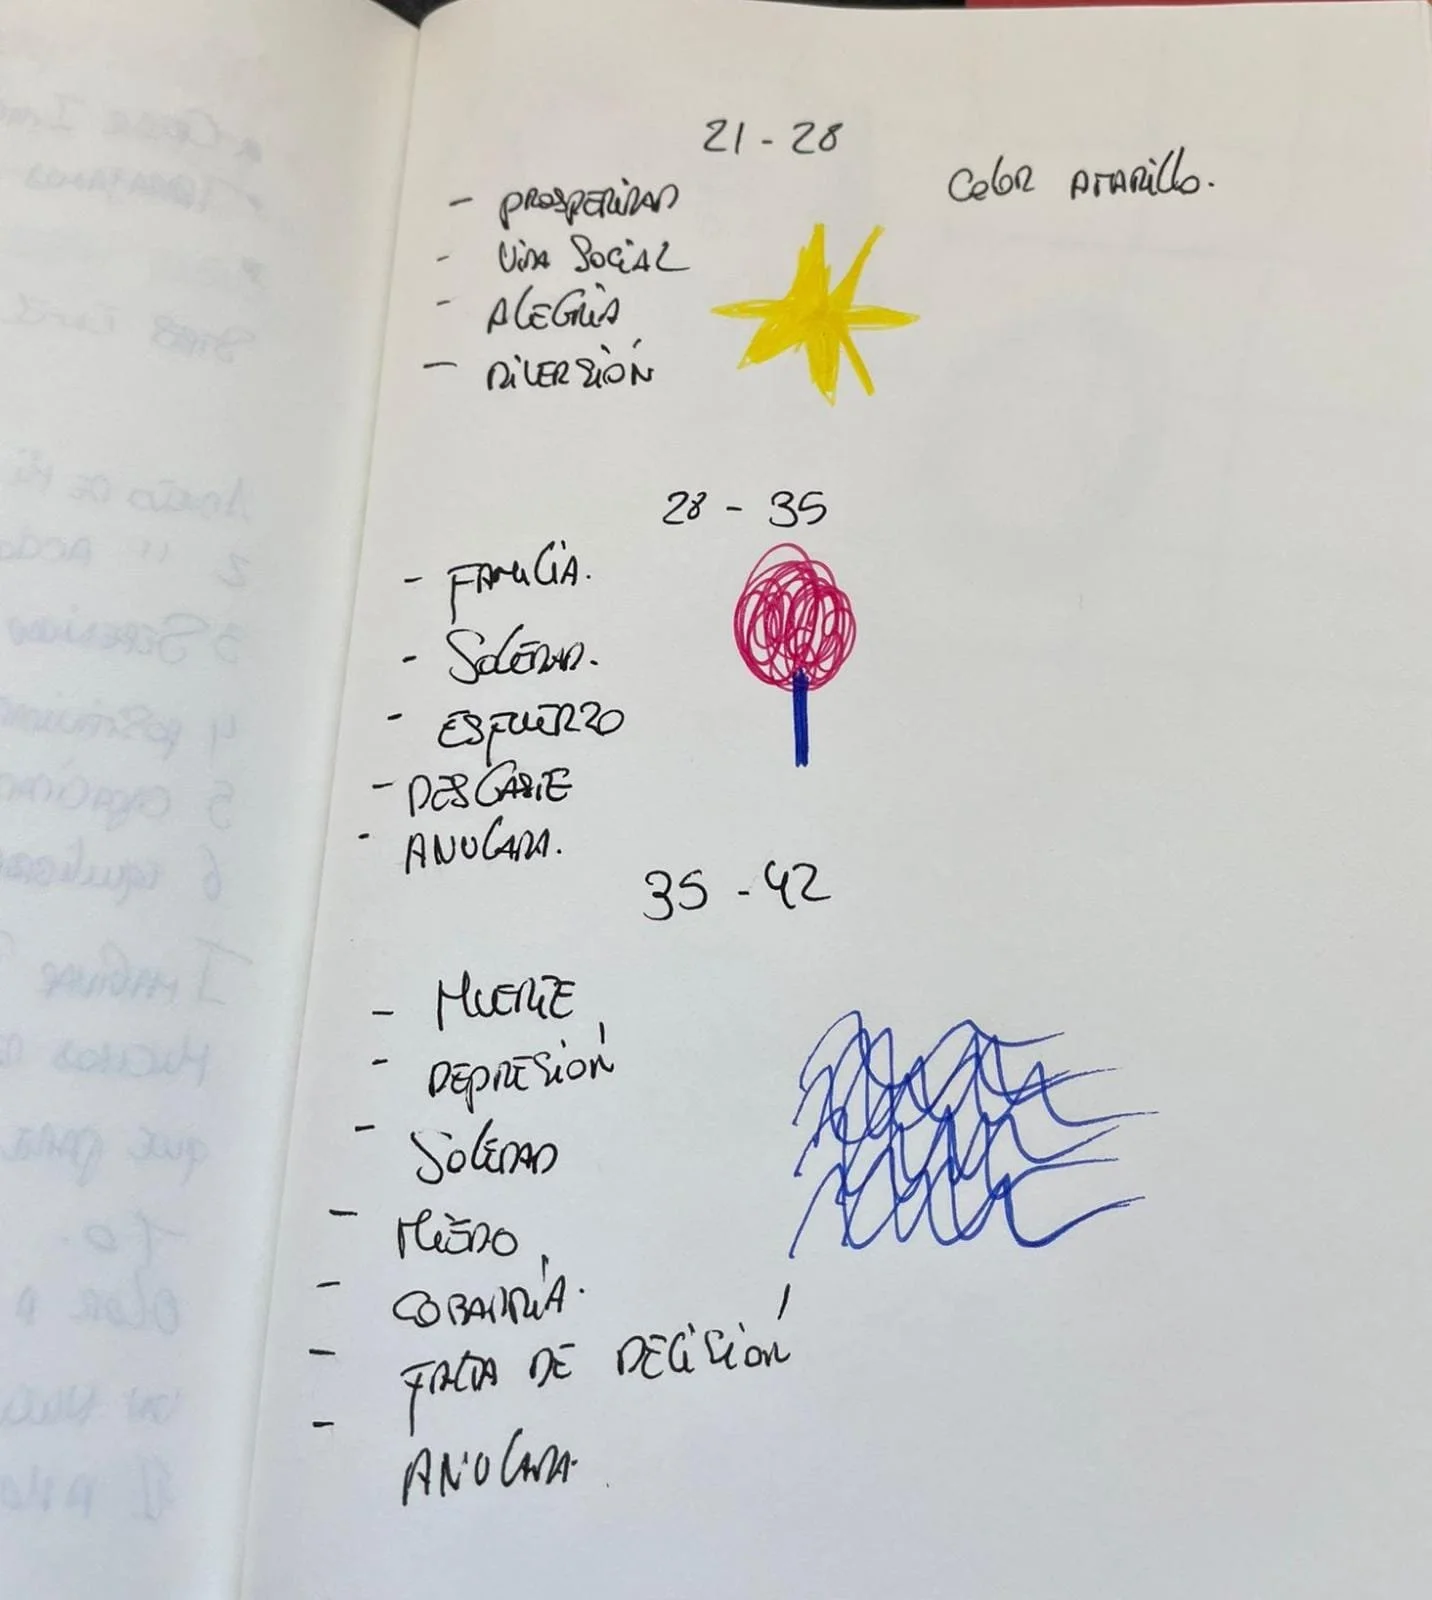 21 - 28
Color amarillo.
- PROSPERIDAD
- VIDA SOCIAL
- ALEGRIA
- DIVERSIÓN
28 - 35
- FAMILIA.
- SOLEDAD.
- ESFUERZO
- DESGASTE
- ANULADA.
35 - 42
- MUERTE
- DEPRESIÓN
- SOLEDAD
- MIEDO
- COBARDÍA.
- FALTA DE DECISIÓN
- ANULADA.